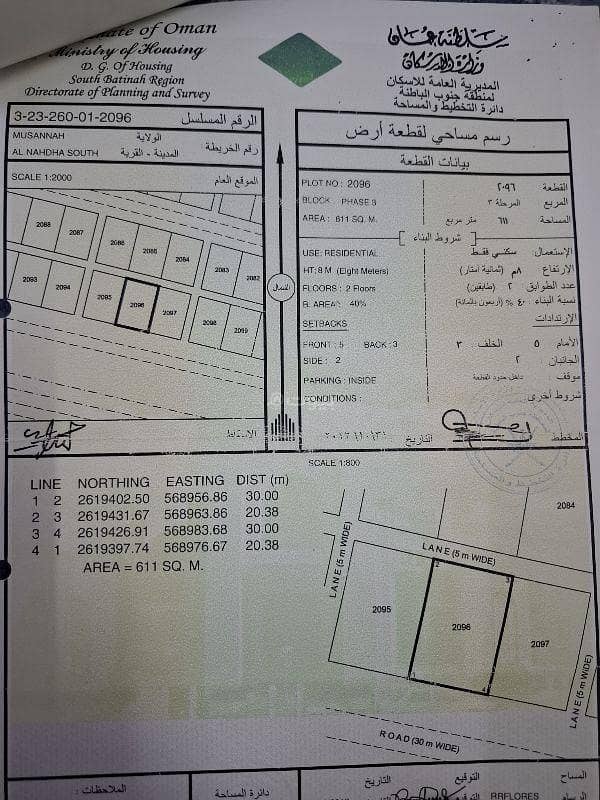 ate of Oman
Ministry of Housing
D. G. Of Housing
South Batinah Region
Directorate of Planning and Survey
سلطنة عمان
وزارة الإسكان
المديرية العامة للاسكان
لمنطقة جنوب الباطنة
دائرة التخطيط والمساحة
3-23-260-01-2096 الرقم المسلسل
MUSANNAH الولاية
AL NAHDHA SOUTH المدينة - القرية رقم الخريطة
SCALE 1:2000 الموقع العام
2088 2087 2086 2085 2084 2083 2082
2093 2094 2095 2096 2097 2098 2099
الشمال
رسم مساحي لقطعة أرض
بيانات القطعة
PLOT NO : 2096 القطعة ٢٠٩٦
BLOCK PHASE 3 المربع المرحلة ٣
AREA : 611 SQ. M. المساحة ٦١١ متر مربع
شروط البناء
USE: RESIDENTIAL الإستعمال: سكني فقط
HT: 8 M (Eight Meters) الارتفاع ٨م (ثمانية أمتار)
FLOORS : 2 Floors عدد الطوابق ٢ (طابقين)
B. AREA: 40% نسبة البناء ٤٠ % (أربعون بالمائة)
SETBACKS الإرتدادات
FRONT : 5 BACK : 3 الأمام ٥ الخلف ٣
SIDE : 2 الجانبان ٢
PARKING : INSIDE موقف : داخل حدود القطعة
CONDITIONS : شروط أخرى
المخطط التاريخ
LINE NORTHING EASTING DIST (m)
1 2 2619402.50 568956.86 30.00
2 3 2619431.67 568963.86 20.38
3 4 2619426.91 568983.68 30.00
4 1 2619397.74 568976.67 20.38
AREA = 611 SQ. M.
SCALE 1:800
2084
LANE (5 m WIDE)
LANE (5 m WIDE)
2095 2096 2097
2 3
1 4
LANE (5 m WIDE)
ROAD (30 m WIDE)
الملاحظات : دائرة المساحة التاريخ التوقيع المساح
RRFLORES الرسام